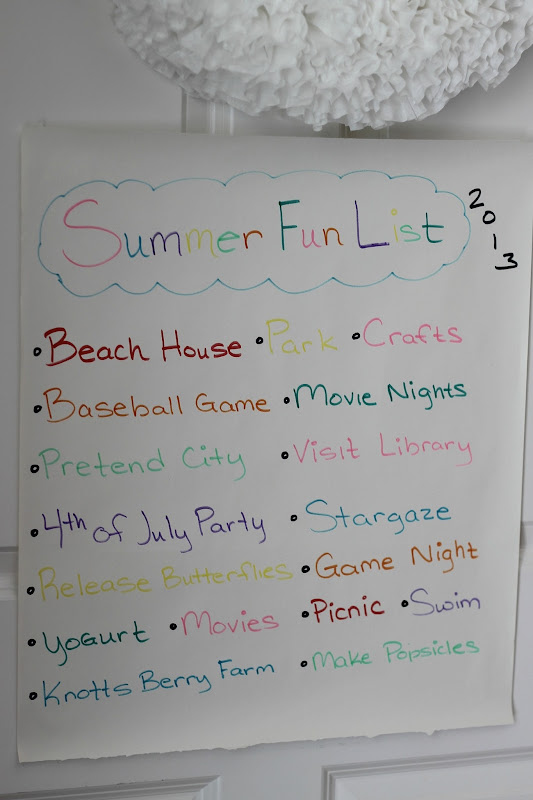 Summer Fun List 2013
• Beach House • Park • Crafts
• Baseball Game • Movie Nights
• Pretend City • Visit Library
• 4th of July Party • Stargaze
• Release Butterflies • Game Night
• Yogurt • Movies • Picnic • Swim
• Knotts Berry Farm • Make Popsicles